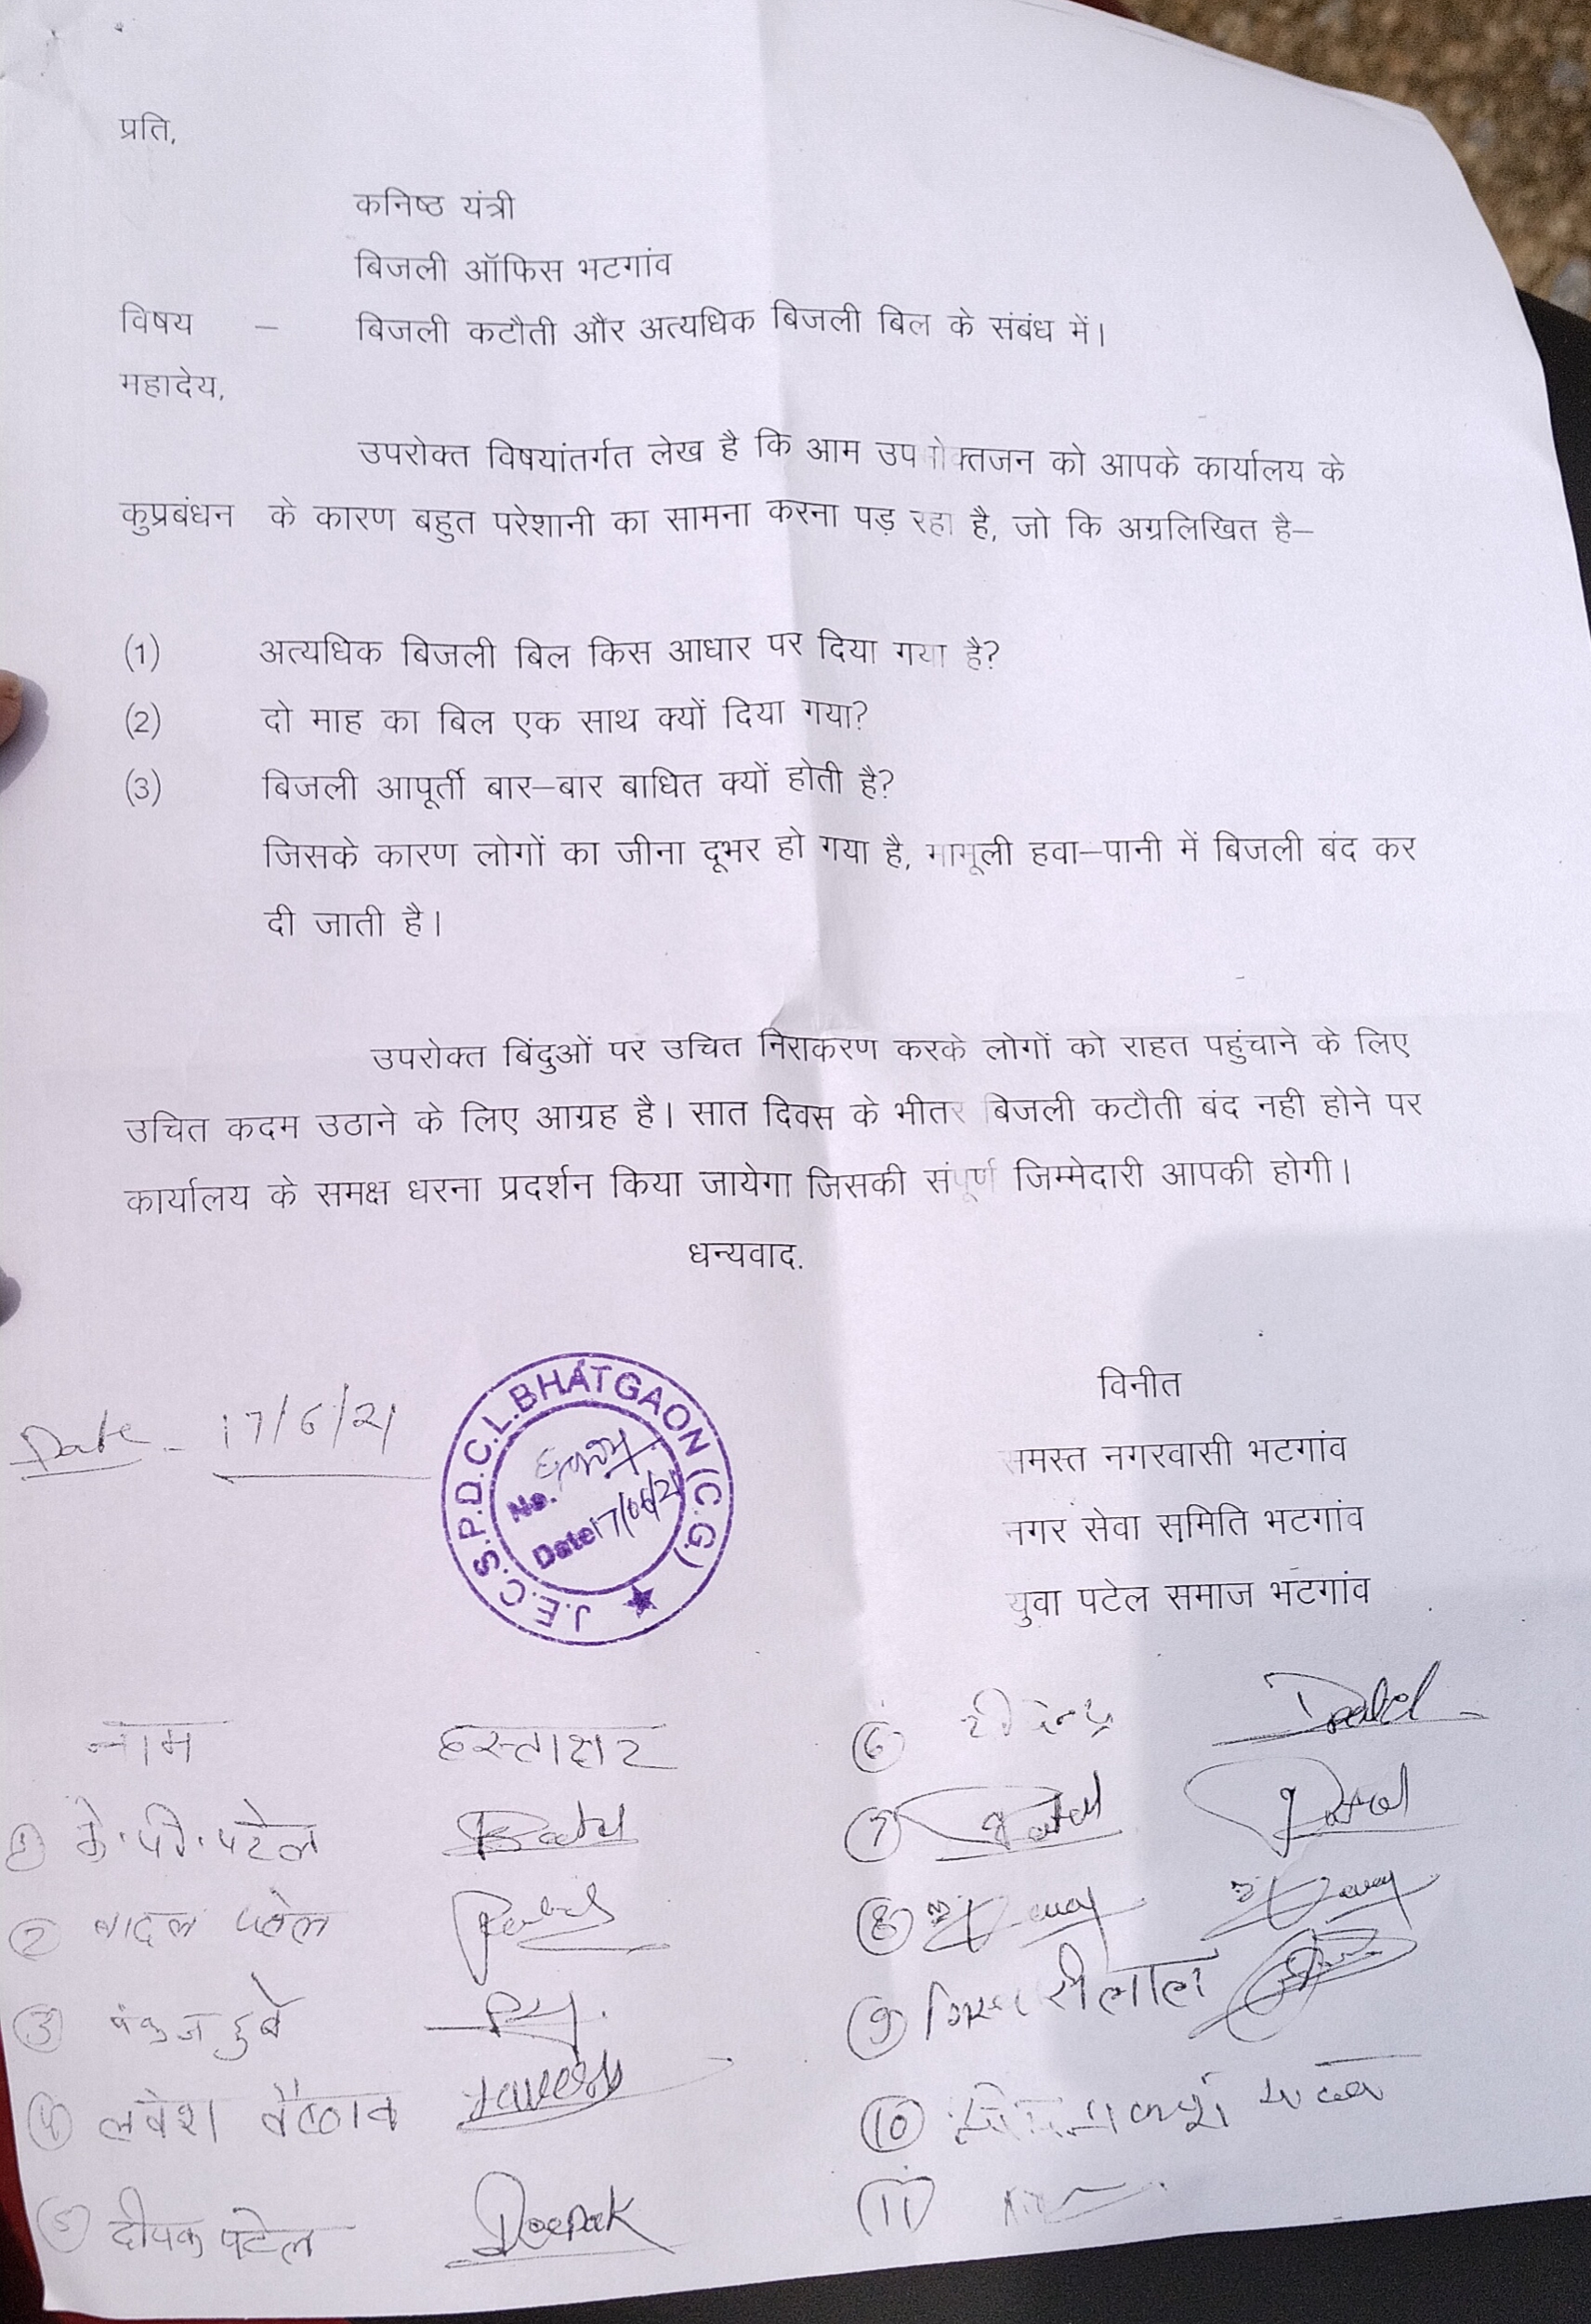 प्रति,
कनिष्ठ यंत्री
बिजली ऑफिस भटगांव
विषय – बिजली कटौती और अत्यधिक बिजली बिल के संबंध में।
महादेय,
उपरोक्त विषयांतर्गत लेख है कि आम उपभोक्तजन को आपके कार्यालय के
कुप्रबंधन के कारण बहुत परेशानी का सामना करना पड़ रहा है, जो कि अग्रलिखित है–
(1) अत्यधिक बिजली बिल किस आधार पर दिया गया है?
(2) दो माह का बिल एक साथ क्यों दिया गया?
(3) बिजली आपूर्ती बार–बार बाधित क्यों होती है?
जिसके कारण लोगों का जीना दूभर हो गया है, मामूली हवा–पानी में बिजली बंद कर
दी जाती है।
उपरोक्त बिंदुओं पर उचित निराकरण करके लोगों को राहत पहुंचाने के लिए
उचित कदम उठाने के लिए आग्रह है। सात दिवस के भीतर बिजली कटौती बंद नही होने पर
कार्यालय के समक्ष धरना प्रदर्शन किया जायेगा जिसकी संपूर्ण जिम्मेदारी आपकी होगी।
धन्यवाद.
Date - 17/6/21
J.E.C.S.P.D.C.L.BHATGAON (C.G)
No.
Date 17/06/21
विनीत
समस्त नगरवासी भटगांव
नगर सेवा समिति भटगांव
युवा पटेल समाज भटगांव
नाम हस्ताक्षर
1 के.पी.पटेल
2 बादल पटेल
3 पंकज दुबे
4 लवेश वैष्णव
5 दीपक पटेल Deepak
6
7 Patel Patel
8
9
10
11